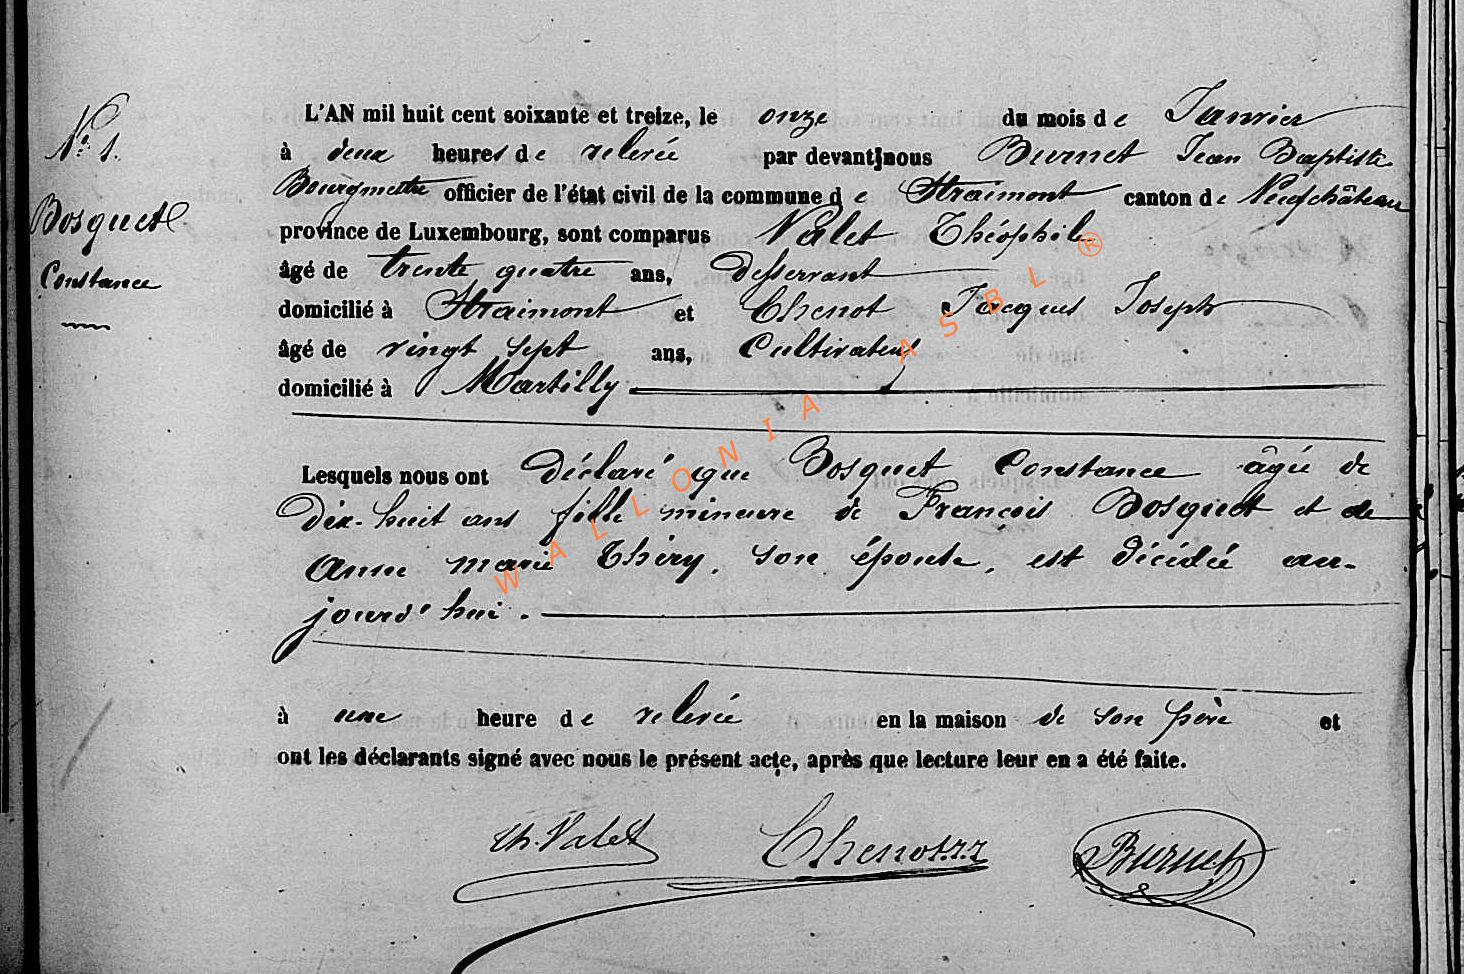 N° 1.
Bosquet
Constance
L'AN mil huit cent soixante et treize, le onze du mois de Janvier
à deux heures de relevée par devant nous Burnet Jean Baptiste
Bourgmestre officier de l'état civil de la commune de Straimont canton de Neufchâteau
province de Luxembourg, sont comparus Valet Théophile
âgé de trente quatre ans, desservant
domicilié à Straimont et Chenot Jacques Joseph
âgé de vingt sept ans, Cultivateur
domicilié à Martilly
Lesquels nous ont déclaré que Bosquet Constance âgée de
dix-huit ans fille mineure de François Bosquet et de
Anne marie Thiry, son épouse, est décédée au-
jourd'hui.
à une heure de relevée en la maison de son père et
ont les déclarants signé avec nous le présent acte, après que lecture leur en a été faite.
Th. Valet Chenot.J.J Burnet
WALLONIA ASBL ®